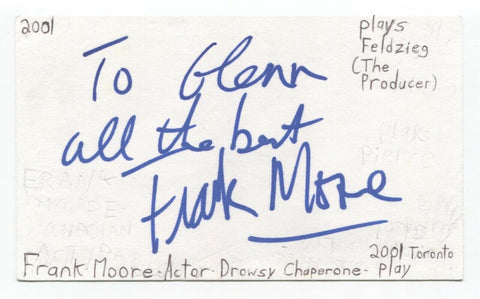 2001
plays
Feldzieg
(The
Producer)
To Glenn
all the best
Frank Moore
2001 Toronto
Frank Moore-Actor-Drowsy Chaperone- play